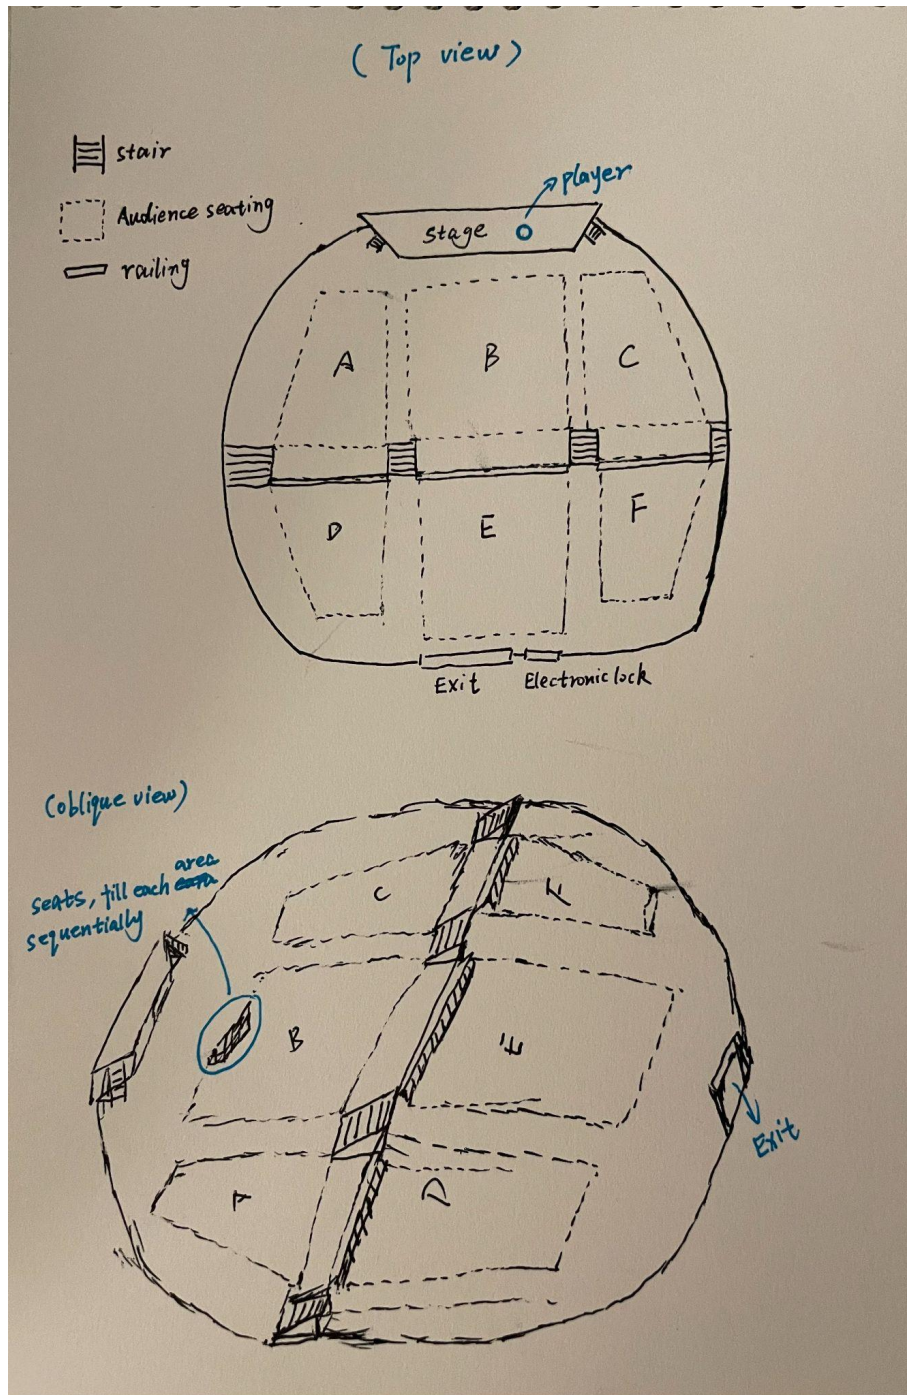 (Top view)
stair
Audience seating
railing
player
stage
A
B
C
D
E
F
Exit
Electronic lock
(oblique view)
seats, fill each area
sequentially
C
F
B
E
A
D
Exit